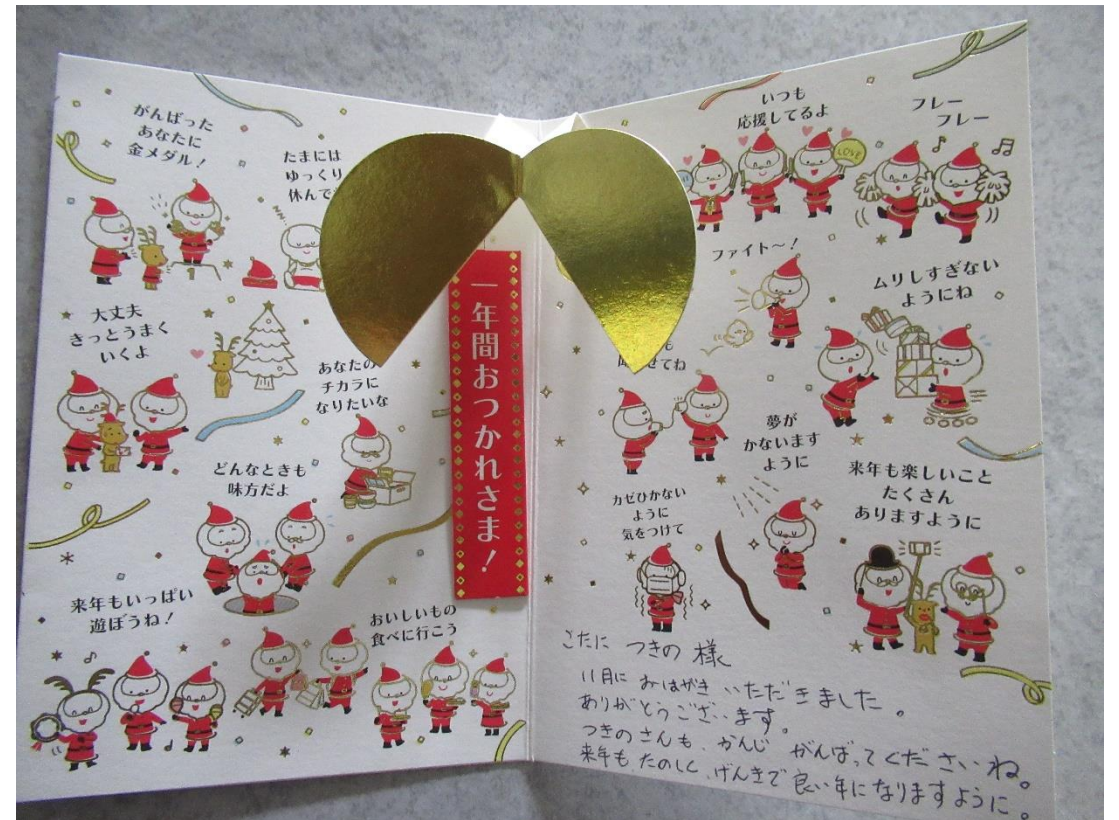 がんばった
あなたに
金メダル！
たまには
ゆっくり
休んで
大丈夫
きっとうまく
いくよ
あなたの
チカラに
なりたいな
どんなときも
味方だよ
来年もいっぱい
遊ぼうね！
おいしいもの
食べに行こう
一年間おつかれさま！
いつも
応援してるよ
LOVE
フレー
フレー
ファイト〜！
ムリしすぎない
ようにね
せてね
夢が
かないます
ように
カゼひかない
ように
気をつけて
来年も楽しいこと
たくさん
ありますように
さたに つきの 様
11月に おはがき いただきました。
ありがとうございます。
つきのさんも、かんじ がんばってくださいね。
来年も、たのしく、げんきで 良い年になりますように。